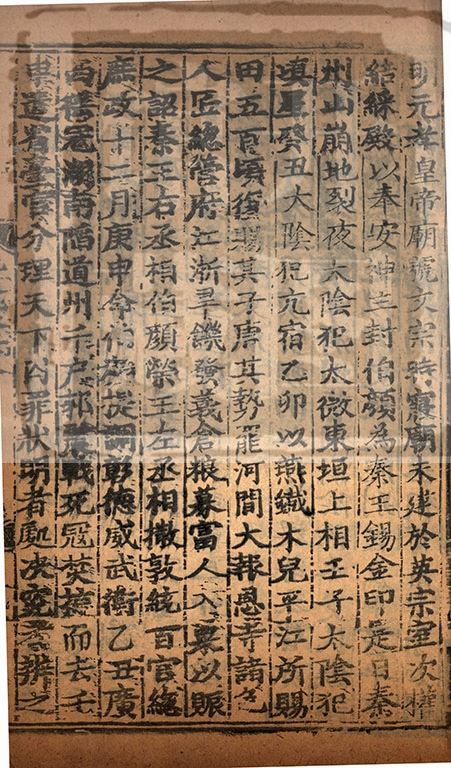 明元孝皇帝廟號文宗時寢廟未建於英宗室次權
結綵殿以奉安神主封伯顔為秦王錫金印是日秦
州山崩地裂夜太陰犯太微東垣上相壬子太陰犯
填星癸丑太陰犯亢宿乙卯以燕鐵木兒平江所賜
田五百頃復賜其子唐其勢罷河間大報恩寺諸色
人匠總管府江浙旱饑發義倉粮募富人入粟以賑
之詔秦王右丞相伯顔榮王左丞相撒敦統百官總
庶政十二月庚申命伯顔提調彰德威武衛乙丑廣
西猺冦湖南陷道州千户郭震戰死冦焚掠而去壬
遣省臺官分理天下囚罪狀明者處决寃者辨之